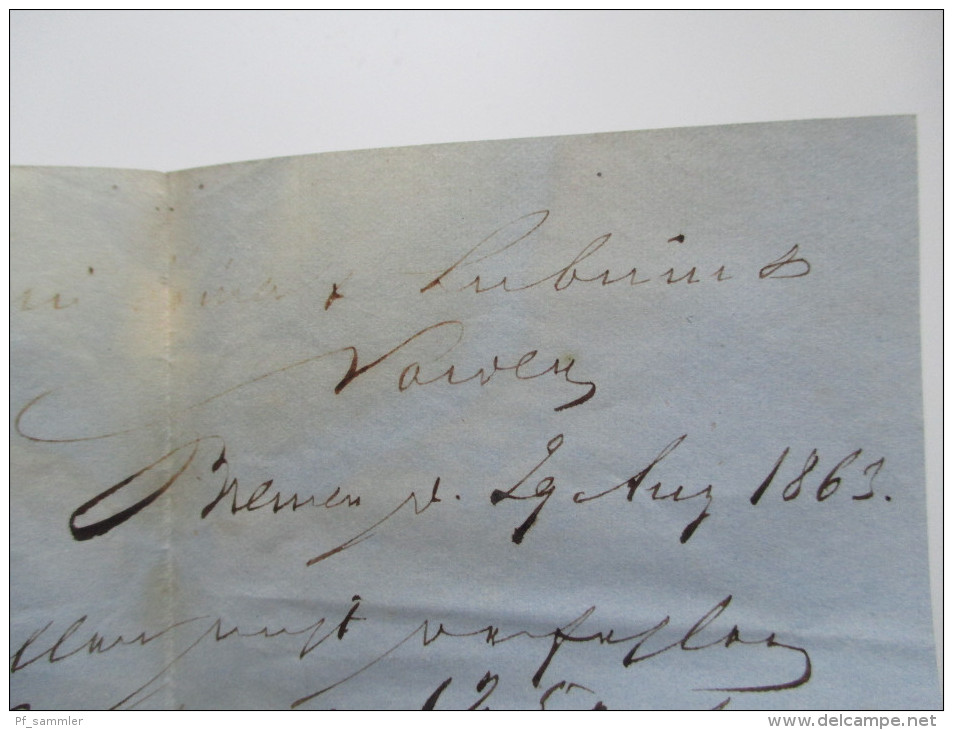 Lubinus
Norden
Bremen d. 29 Aug 1863.
nicht verfehlen
Pf_sammler
www.delcampe.net